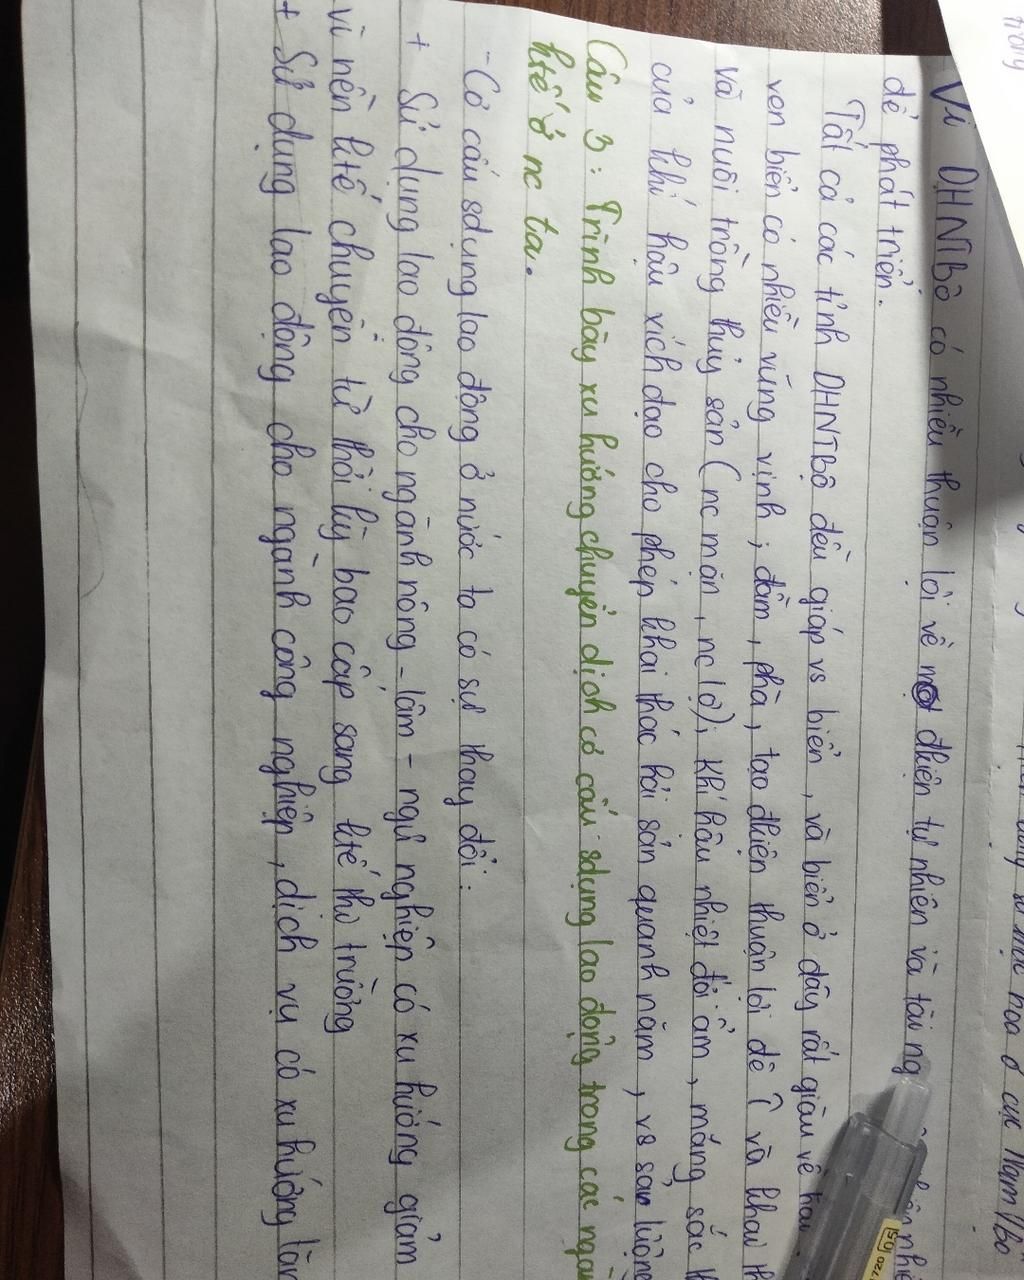 trong
cực Nam Bộ
Vì DHNTBộ có nhiều thuận lợi về đkiện tự nhiên và tài ng
để phát triển.
Tất cả các tỉnh DHNTBộ đều giáp vs biển, và biển ở đây rất giàu về hải
ven biển có nhiều vũng vịnh, đầm, phà, tạo đkiện thuận lợi để và khai th
và nuôi trồng thủy sản (nc mặn, nc lợ), khí hậu nhiệt đới ẩm, mang sắc th
của khí hậu xích đạo cho phép khai thác hải sản quanh năm, vs sản lượng
Câu 3: Trình bày xu hướng chuyển dịch cơ cấu sdụng lao động trong các ngàn
ktế ở nc ta.
- Cơ cấu sdụng lao động ở nước ta có sự thay đổi:
+ Sử dụng lao động cho ngành nông - lâm - ngư nghiệp có xu hướng giảm
vì nền ktế chuyện từ thời kỳ bao cấp sang ktế thị trường
+ Sử dụng lao động cho ngành công nghiệp, dịch vụ có xu hướng tăn
720